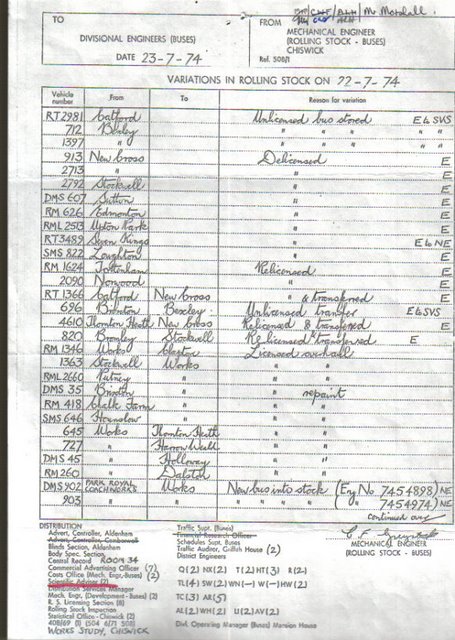 TO
DIVISIONAL ENGINEERS (BUSES)
DATE 23-7-74
FROM Mr Mordall.
MECHANICAL ENGINEER
(ROLLING STOCK - BUSES)
CHISWICK
Ref. 508/1
VARIATIONS IN ROLLING STOCK ON 22-7-74
Vehicle number From To Reason for variation
RT2981 Catford Unlicensed bus stored E to SVS
712 Bexley " " " " "
1397 " " " " " "
913 New Cross Delicensed E
2713 " " E
2792 Stockwell " E
DMS 607 Sutton " E
RM 626 Edmonton " E
RML 2513 Upton Park " E
RT3489 Seven Kings " E to NE
SMS 822 Loughton " E
RM 1624 Tottenham Relicensed E
2090 Norwood " E
RT 1366 Catford New Cross " & transferred E
696 Brixton Bexley Unlicensed transfer E to SVS
4610 Thornton Heath New Cross Relicensed & transferred E
820 Bromley Stockwell Relicensed & transferred E
RM 1346 Works Clapton Licensed overhaul
1363 Stockwell Works " "
RML 2660 Putney " " "
DMS 35 Brixton " " repaint
RM 418 Chalk Farm " " "
SMS 646 Hounslow " " "
645 Works Thornton Heath " "
727 " Harrow Weald " "
DMS 45 " Holloway " "
RM 260 " Dalston " "
DMS 902 PARK ROYAL COACHWORKS Works New bus into stock (Eng No 7454898) NE
903 " " " " 7454974) NE
continued over
MECHANICAL ENGINEER
(ROLLING STOCK - BUSES)
DISTRIBUTION
Advert, Controller, Aldenham
Advert, Controller, Camberwell
Blinds Section, Aldenham
Body Spec. Section
Central Record ROOM 34
Commercial Advertising Officer (7)
Costs Office (Mech. Engr.-Buses) (2)
Scientific Adviser (2)
Distribution Services Manager
Mech. Engr. (Development - Buses) (2)
R. S. Licensing Section (8)
Rolling Stock Inspection
Statistical Office - Chiswick (2)
408/69 (1) 504 6/71 508)
WORKS STUDY, CHISWICK
Traffic Supt. (Buses)
Financial Research Officer
Schedules Supt. Buses
Traffic Auditor, Griffith House (2)
District Engineers
Q(2) NX(2) T(2) HT(3) R(2)
TL(4) SW(2) WN(-) W(-) HW(2)
TC(3) AR(5)
AL(2) WH(2) U(2) AV(2)
Divl. Operating Manager (Buses) Mansion House